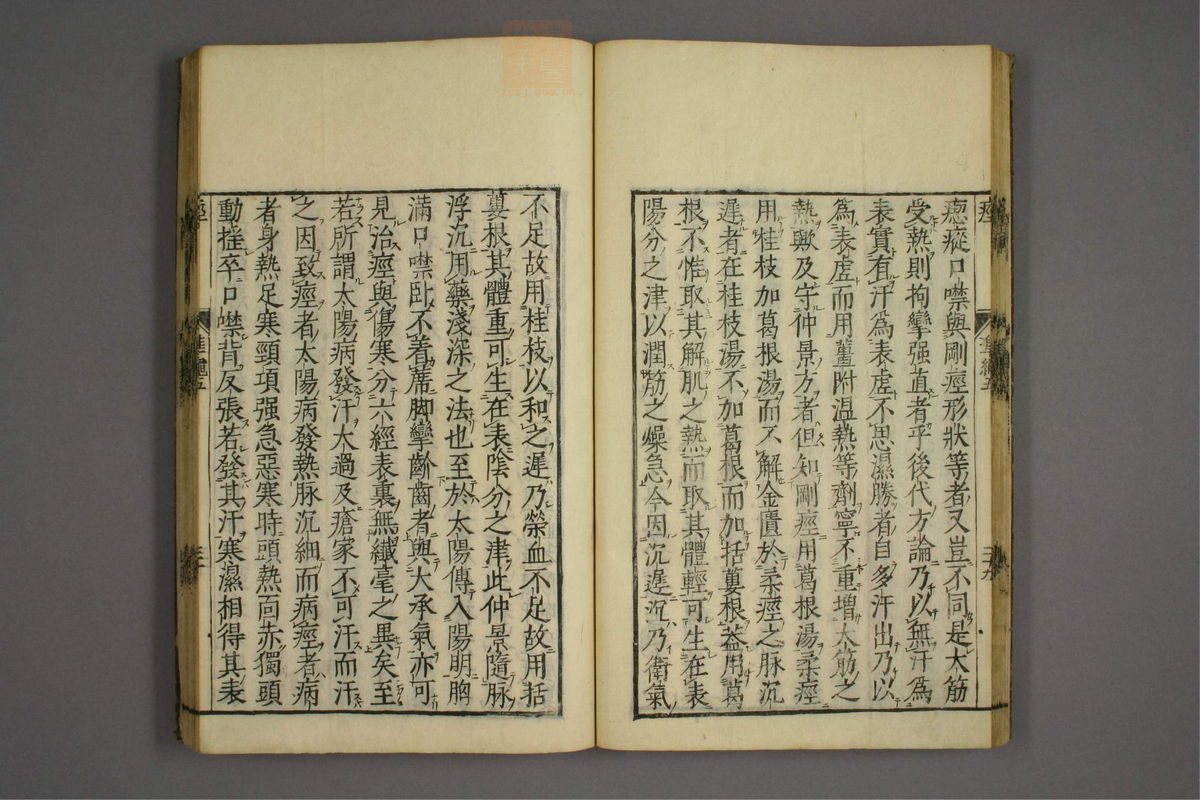 瘛瘲口噤與剛痓形狀等者又豈不同是大筋
受熱則拘攣强直者乎後代方論乃以無汗爲
表實有汗爲表虚不思濕勝者自多汗出乃以
爲表虚而用薑附温熱等劑寧不重增大筋之
熱歟及守仲景方者但知剛痓用葛根湯柔痓
用桂枝加葛根湯而不解金匱於柔痓之脉沉
遲者在桂枝湯不加葛根而加括蔞根葢用葛
根不惟取其解肌之熱而取其體輕可生在表
陽分之津以潤筋之燥急今因沉遲沉乃衛氣
痓
準繩五
三十九
不足故用桂枝以和之遲乃榮血不足故用括
蔞根其體重可生在表陰分之津此仲景隨脉
浮沉用藥淺深之法也至於太陽傳入陽明胸
滿口噤卧不着蓆脚攣齡齒者與大承氣亦可
見治痓與傷寒分六經表裏無纖毫之異矣至
若所謂太陽病發汗太過及瘡家不可汗而汗
之因致痓者太陽病發熱脉沉細而病痓者病
者身熱足寒頸項强急惡寒時頭熱靣赤獨頭
動揺卒口噤背反張若發其汗寒濕相得其表
痓
準繩五